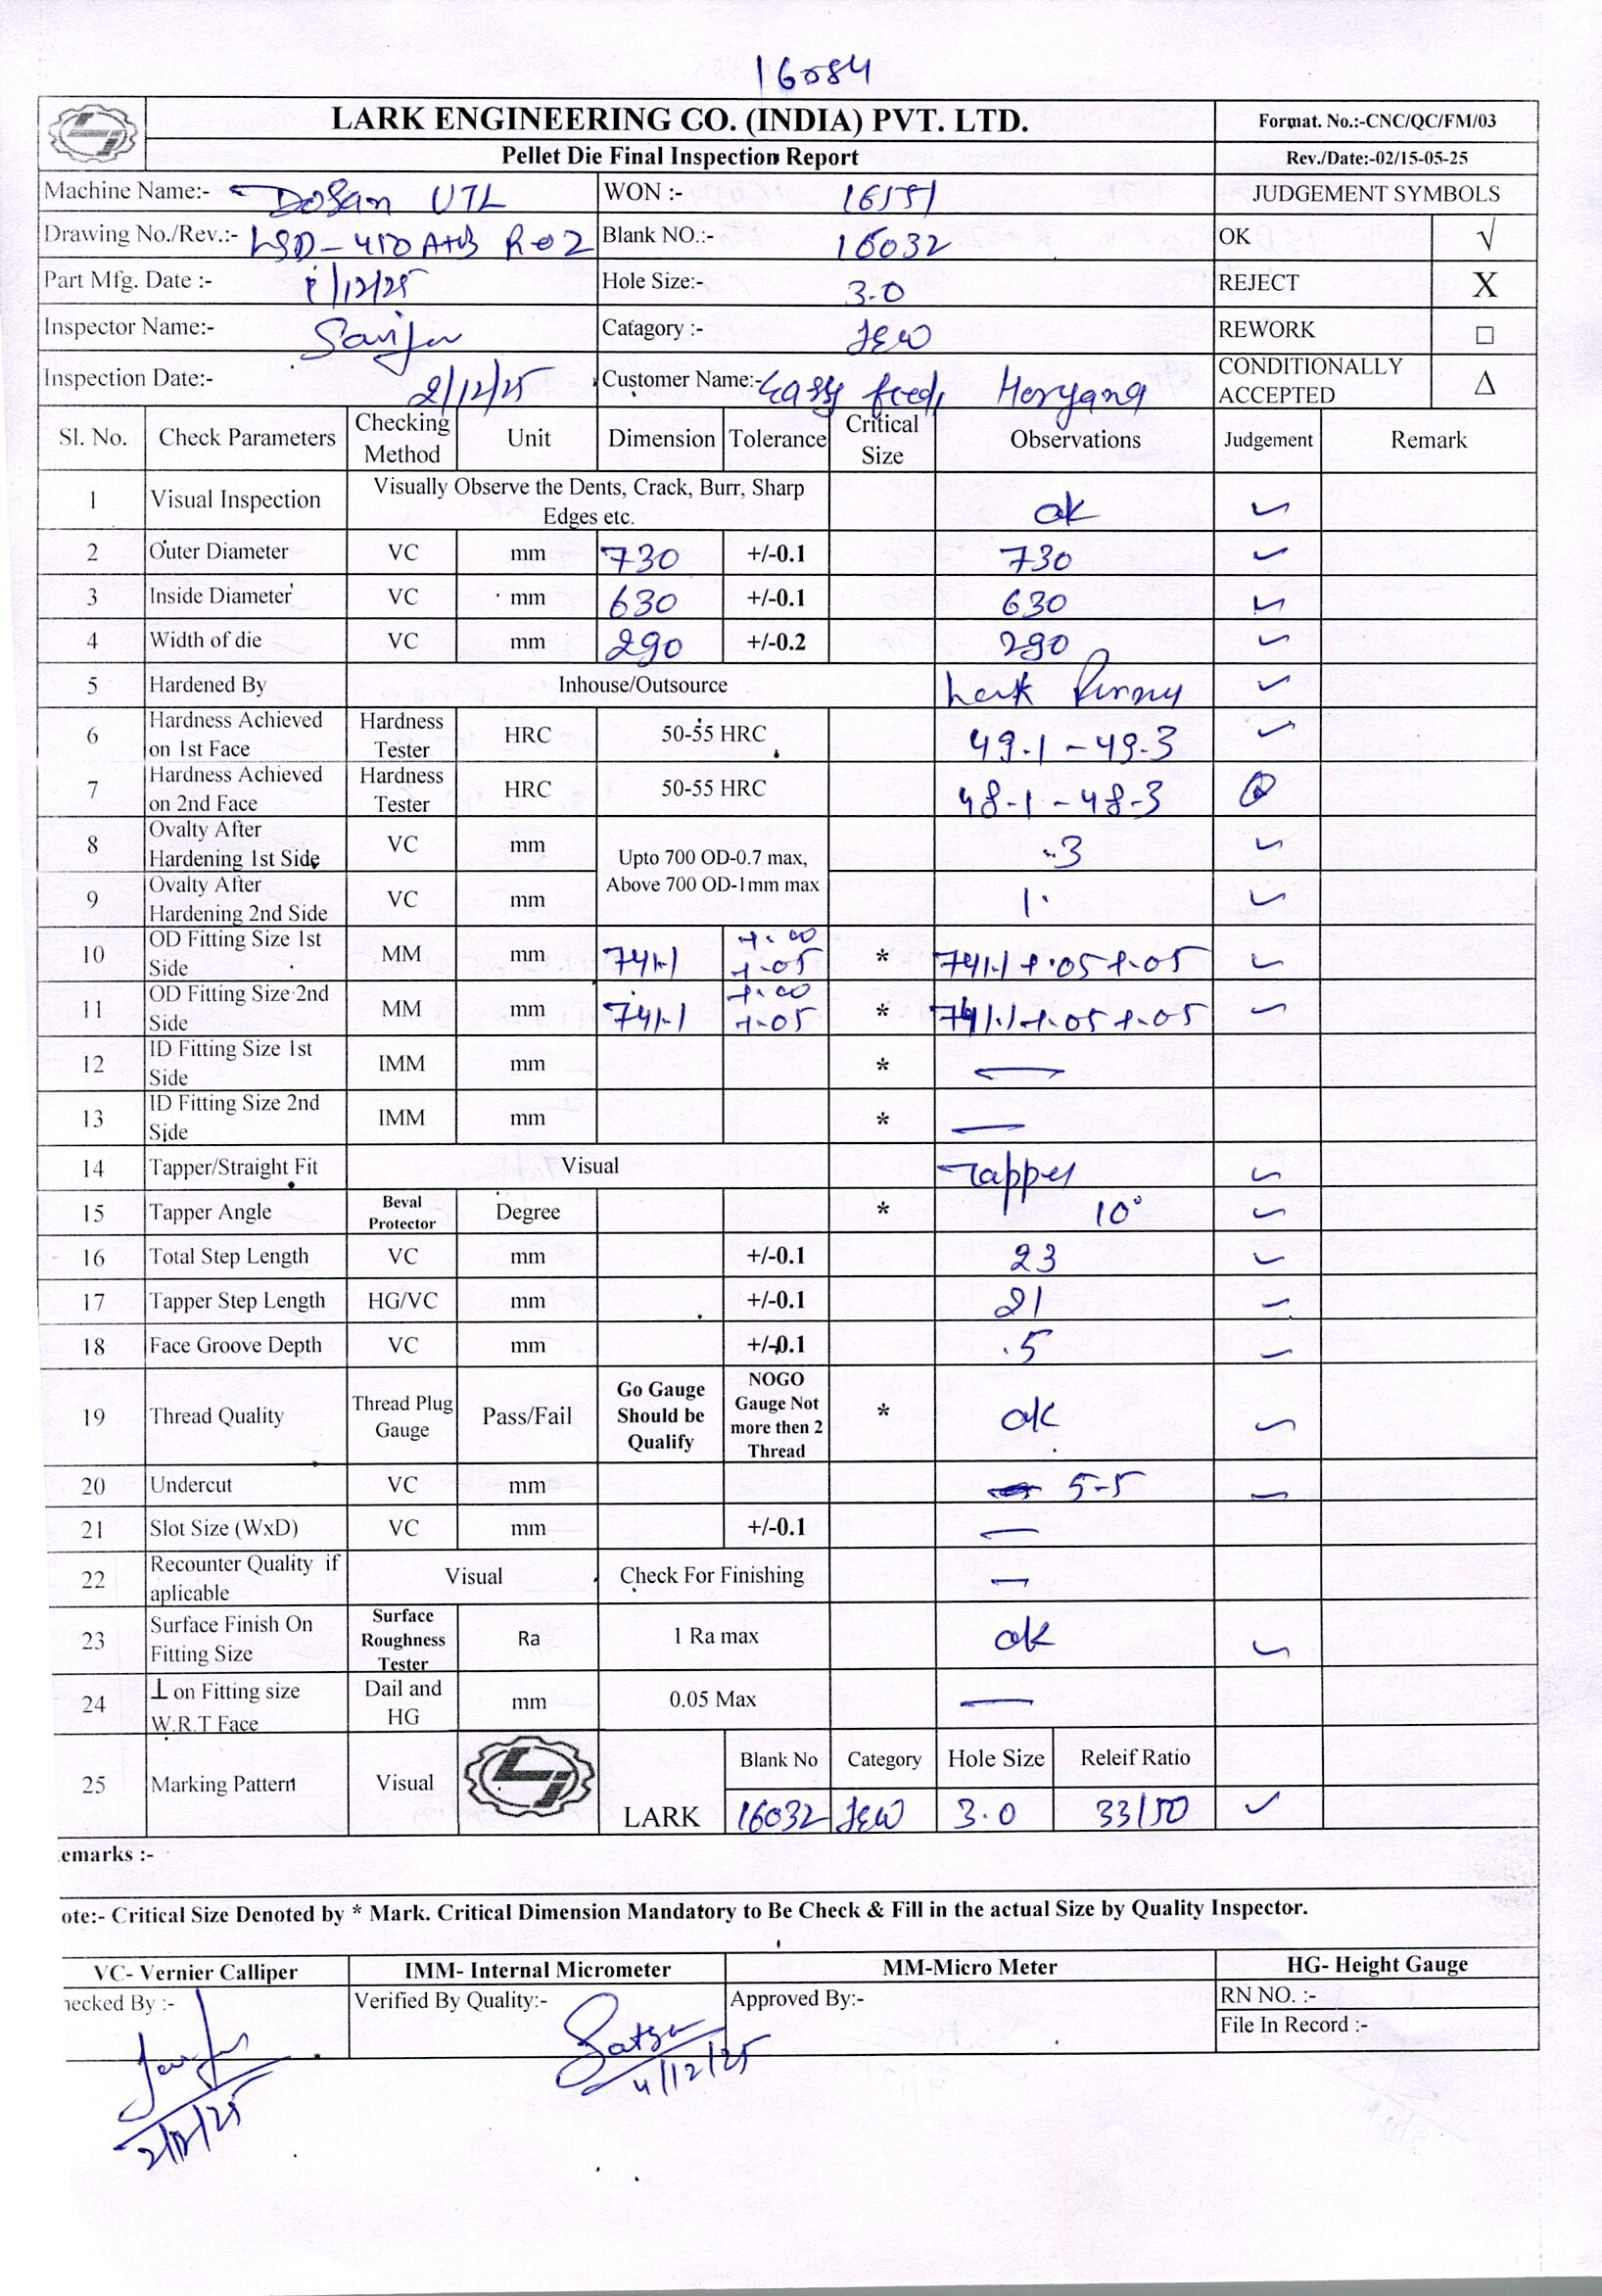 16084
LARK ENGINEERING CO. (INDIA) PVT. LTD.
Format. No.:-CNC/QC/FM/03
Pellet Die Final Inspection Report
Rev./Date:-02/15-05-25
Machine Name:- Dosan VTL WON :- JUDGEMENT SYMBOLS
Drawing No./Rev.:- LSD-450 A+B R02 Blank NO.:- 16032 OK √
Part Mfg. Date :- /12/25 Hole Size:- 3.0 REJECT X
Inspector Name:- Catagory :- JEW REWORK □
Inspection Date:- 2/12/25 Customer Name:- feed, CONDITIONALLY ACCEPTED Δ
Sl. No. Check Parameters Checking Method Unit Dimension Tolerance Critical Size Observations Judgement Remark
1 Visual Inspection Visually Observe the Dents, Crack, Burr, Sharp Edges etc. ok ✓
2 Outer Diameter VC mm 730 +/-0.1 730 ✓
3 Inside Diameter VC mm 630 +/-0.1 630 ✓
4 Width of die VC mm 290 +/-0.2 290 ✓
5 Hardened By Inhouse/Outsource Lark ✓
6 Hardness Achieved on 1st Face Hardness Tester HRC 50-55 HRC 49.1 - 49.3 ✓
7 Hardness Achieved on 2nd Face Hardness Tester HRC 50-55 HRC 48.1 - 48.3
8 Ovalty After Hardening 1st Side VC mm Upto 700 OD-0.7 max, Above 700 OD-1mm max .3 ✓
9 Ovalty After Hardening 2nd Side VC mm 1. ✓
10 OD Fitting Size 1st Side MM mm 741.1 +.00 +.05 * 741.1 +.05 +.05 ✓
11 OD Fitting Size 2nd Side MM mm 741.1 +.00 +.05 * 741.1 +.05 +.05 ✓
12 ID Fitting Size 1st Side IMM mm * —
13 ID Fitting Size 2nd Side IMM mm * —
14 Tapper/Straight Fit Visual Tapper ✓
15 Tapper Angle Beval Protector Degree * 10° ✓
16 Total Step Length VC mm +/-0.1 23 ✓
17 Tapper Step Length HG/VC mm +/-0.1 21 ✓
18 Face Groove Depth VC mm +/-0.1 .5 ✓
19 Thread Quality Thread Plug Gauge Pass/Fail Go Gauge Should be Qualify NOGO Gauge Not more then 2 Thread * ok ✓
20 Undercut VC mm 5.5 ✓
21 Slot Size (WxD) VC mm +/-0.1 —
22 Recounter Quality if aplicable Visual Check For Finishing —
23 Surface Finish On Fitting Size Surface Roughness Tester Ra 1 Ra max ok ✓
24 ⊥ on Fitting size W.R.T Face Dail and HG mm 0.05 Max —
25 Marking Pattern Visual LARK Blank No Category Hole Size Releif Ratio
16032 JEW 3.0 33/50 ✓
emarks :-
ote:- Critical Size Denoted by * Mark. Critical Dimension Mandatory to Be Check & Fill in the actual Size by Quality Inspector.
VC- Vernier Calliper IMM- Internal Micrometer MM-Micro Meter HG- Height Gauge
hecked By :- Verified By Quality:- Approved By:- RN NO. :-
File In Record :-
4/12/25
2/12/25